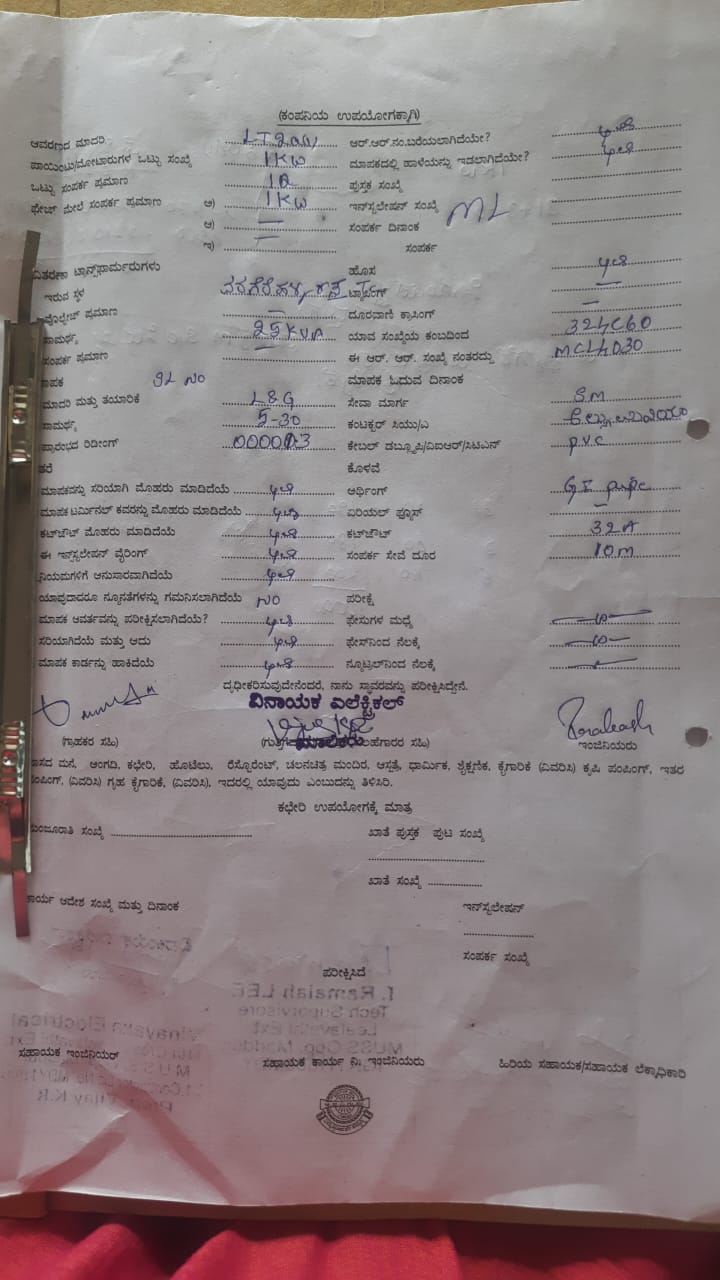 (ಕಂಪನಿಯ ಉಪಯೋಗಕ್ಕಾಗಿ)
ಆವರಣದ ಮಾದರಿ ಆರ್.ಆರ್.ನಂ.ಬರೆಯಲಾಗಿದೆಯೇ? yes
ಪಾಯಿಂಟು/ಮೋಟಾರುಗಳ ಒಟ್ಟು ಸಂಖ್ಯೆ 1KW ಮಾಪಕದಲ್ಲಿ ಹಾಳೆಯನ್ನು ಇಡಲಾಗಿದೆಯೇ? yes
ಒಟ್ಟು ಸಂಪರ್ಕ ಪ್ರಮಾಣ ಪುಸ್ತಕ ಸಂಖ್ಯೆ
ಫೇಜ್ ಮೇಲೆ ಸಂಪರ್ಕ ಪ್ರಮಾಣ ಅ) 1KW ಇನ್‌ಸ್ಟಲೇಷನ್ ಸಂಖ್ಯೆ ML
ಆ) — ಸಂಪರ್ಕ ದಿನಾಂಕ
ಇ) — ಸಂಪರ್ಕ
ವಿತರಣಾ ಟ್ರಾನ್ಸ್‌ಫಾರ್ಮರುಗಳು ಹೊಸ yes
ಇರುವ ಸ್ಥಳ ಟ್ಯಾಪಿಂಗ್ —
ವೋಲ್ಟೇಜ್ ಪ್ರಮಾಣ — ದೂರವಾಣಿ ಕ್ರಾಸಿಂಗ್ —
ಸಾಮರ್ಥ್ಯ 25KVA ಯಾವ ಸಂಖ್ಯೆಯ ಕಂಬದಿಂದ 324C60
ಸಂಪರ್ಕ ಪ್ರಮಾಣ — ಈ ಆರ್. ಆರ್. ಸಂಖ್ಯೆ ನಂತರದ್ದು MCL4030
ಮಾಪಕ SL NO ಮಾಪಕ ಓದುವ ದಿನಾಂಕ
ಮಾದರಿ ಮತ್ತು ತಯಾರಿಕೆ L&G ಸೇವಾ ಮಾರ್ಗ SM
ಸಾಮರ್ಥ್ಯ 5-30 ಕಂಟಕ್ಟರ್ ಸಿಯು/ಎ
ಪ್ರಾರಂಭದ ರಿಡೀಂಗ್ ಕೇಬಲ್ ಡಬ್ಲ್ಯೂಪಿ/ವಿಐಆರ್/ಸಿಟಿಎಸ್ P.V.C
ತರೆ ಕೊಳವೆ
ಮಾಪಕವನ್ನು ಸರಿಯಾಗಿ ಮೊಹರು ಮಾಡಿದೆಯೆ yes ಅರ್ಥಿಂಗ್ GI pipe
ಮಾಪಕ ಟರ್ಮಿನಲ್ ಕವರನ್ನು ಮೊಹರು ಮಾಡಿದೆಯೆ yes ಏರಿಯಲ್ ಫ್ಯೂಸ್ —
ಕಟ್‌ಔಟ್ ಮೊಹರು ಮಾಡಿದೆಯೆ yes ಕಟ್‌ಔಟ್ 32A
ಈ ಇನ್‌ಸ್ಟಲೇಷನ್ ವೈರಿಂಗ್ yes ಸಂಪರ್ಕ ಸೇವೆ ದೂರ 10M
ನಿಯಮಗಳಿಗೆ ಅನುಸಾರವಾಗಿದೆಯೆ yes
ಯಾವುದಾದರೂ ನ್ಯೂನತೆಗಳನ್ನು ಗಮನಿಸಲಾಗಿದೆಯೆ NO ಪರೀಕ್ಷೆ
ಮಾಪಕ ಆವರ್ತವನ್ನು ಪರೀಕ್ಷಿಸಲಾಗಿದೆಯೆ? yes ಫೇಸುಗಳ ಮಧ್ಯೆ
ಸರಿಯಾಗಿದೆಯೆ ಮತ್ತು ಅದು yes ಫೇಸ್‌ನಿಂದ ನೆಲಕ್ಕೆ
ಮಾಪಕ ಕಾರ್ಡನ್ನು ಹಾಕಿದೆಯೆ yes ನ್ಯೂಟ್ರಲ್‌ನಿಂದ ನೆಲಕ್ಕೆ
ದೃಢೀಕರಿಸುವುದೇನೆಂದರೆ, ನಾನು ಸ್ಥಾವರವನ್ನು ಪರೀಕ್ಷಿಸಿದ್ದೇನೆ.
ವಿನಾಯಕ ಎಲೆಕ್ಟ್ರಿಕಲ್
Prakash
(ಗ್ರಾಹಕರ ಸಹಿ) ಮಾಲೀಕರು ಸಹಿ) ಇಂಜಿನಿಯರು
ವಾಸದ ಮನೆ, ಅಂಗಡಿ, ಕಛೇರಿ, ಹೊಟೆಲು, ರೆಸ್ಟೊರೆಂಟ್, ಚಲನಚಿತ್ರ ಮಂದಿರ, ಆಸ್ಪತ್ರೆ, ಧಾರ್ಮಿಕ, ಶೈಕ್ಷಣಿಕ, ಕೈಗಾರಿಕೆ (ವಿವರಿಸಿ) ಕೃಷಿ ಪಂಪಿಂಗ್, ಇತರ
ಪಂಪಿಂಗ್, (ವಿವರಿಸಿ) ಗೃಹ ಕೈಗಾರಿಕೆ, (ವಿವರಿಸಿ), ಇದರಲ್ಲಿ ಯಾವುದು ಎಂಬುದನ್ನು ತಿಳಿಸಿರಿ.
ಕಛೇರಿ ಉಪಯೋಗಕ್ಕೆ ಮಾತ್ರ
ಮಂಜೂರಾತಿ ಸಂಖ್ಯೆ ಖಾತೆ ಪುಸ್ತಕ ಪುಟ ಸಂಖ್ಯೆ
ಖಾತೆ ಸಂಖ್ಯೆ
ಕಾರ್ಯ ಆದೇಶ ಸಂಖ್ಯೆ ಮತ್ತು ದಿನಾಂಕ ಇನ್‌ಸ್ಟಲೇಷನ್
ಸಂಪರ್ಕ ಸಂಖ್ಯೆ
ಪರೀಕ್ಷಿಸಿದೆ
ಸಹಾಯಕ ಇಂಜಿನಿಯರ್ ಸಹಾಯಕ ಕಾರ್ಯ ನಿ. ಇಂಜಿನಿಯರು ಹಿರಿಯ ಸಹಾಯಕ/ಸಹಾಯಕ ಲೆಕ್ಕಾಧಿಕಾರಿ